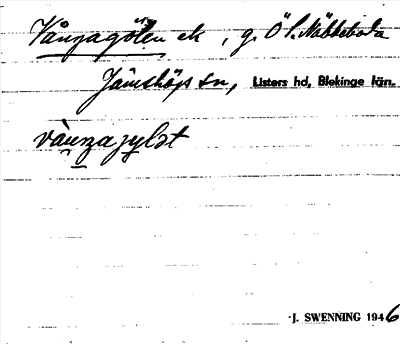 Vångagölen ek, g. Ö l. Näbbeboda
Jämshögs sn, Listers hd, Blekinge län.
J. SWENNING 1946